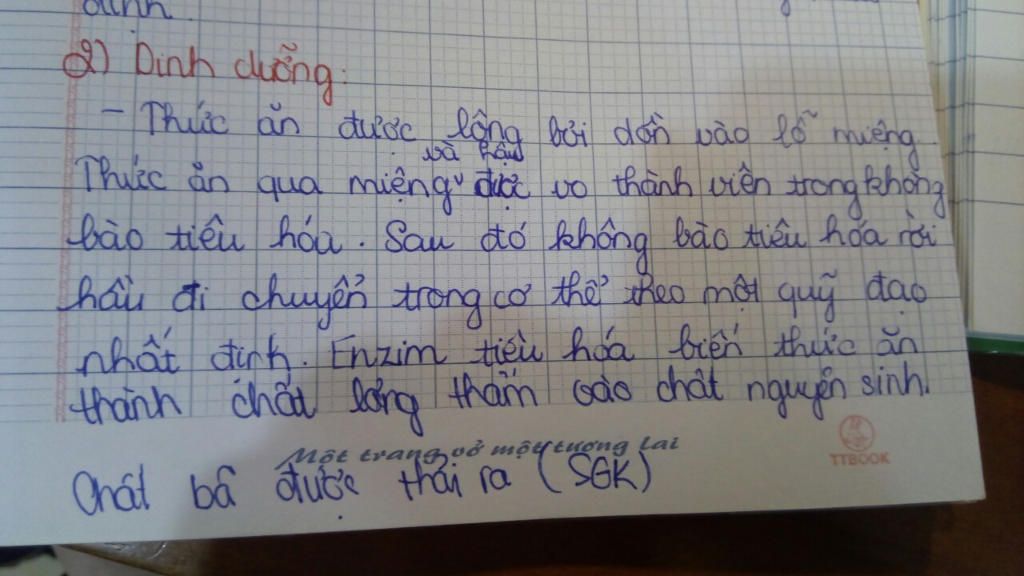 định.
2) Dinh dưỡng:
- Thức ăn được lông bơi dồn vào lỗ miệng.
và hầu
Thức ăn qua miệng được vo thành viên trong không
bào tiêu hóa. Sau đó không bào tiêu hóa rời
hầu di chuyển trong cơ thể theo một quỹ đạo
nhất định. Enzim tiêu hóa biến thức ăn
thành chất lỏng thấm vào chất nguyên sinh.
Một trang vở một tương lai
TTBOOK
Chất bã được thải ra (SGK)